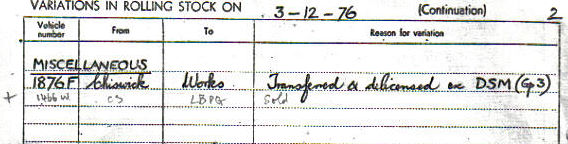 VARIATIONS IN ROLLING STOCK ON 3-12-76 (Continuation) 2
Vehicle number From To Reason for variation
MISCELLANEOUS
1876F Chiswick Works Transferred & delicensed ex DSM (Gp3)
+ 1466W CS LBPG Sold